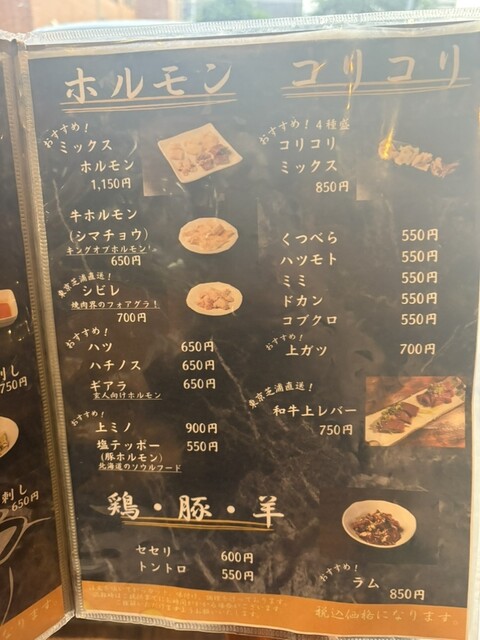 ホルモン
おすすめ！
ミックス
ホルモン
1,150円
牛ホルモン
(シマチョウ)
キングオブホルモン！
650円
東京芝浦直送！
シビレ
焼肉界のフォアグラ！
700円
おすすめ！
ハツ 650円
ハチノス 650円
ギアラ 650円
玄人向けホルモン
おすすめ！
上ミノ 900円
塩テッポー 550円
(豚ホルモン)
北海道のソウルフード
コリコリ
おすすめ！4種盛
コリコリ
ミックス
850円
くつべら 550円
ハツモト 550円
ミミ 550円
ドカン 550円
コブクロ 550円
おすすめ！
上ガツ 700円
東京芝浦直送！
和牛上レバー
750円
鶏・豚・羊
セセリ 600円
トントロ 550円
おすすめ！
ラム 850円
税込価格になります
刺し
750円
刺し
650円
ます